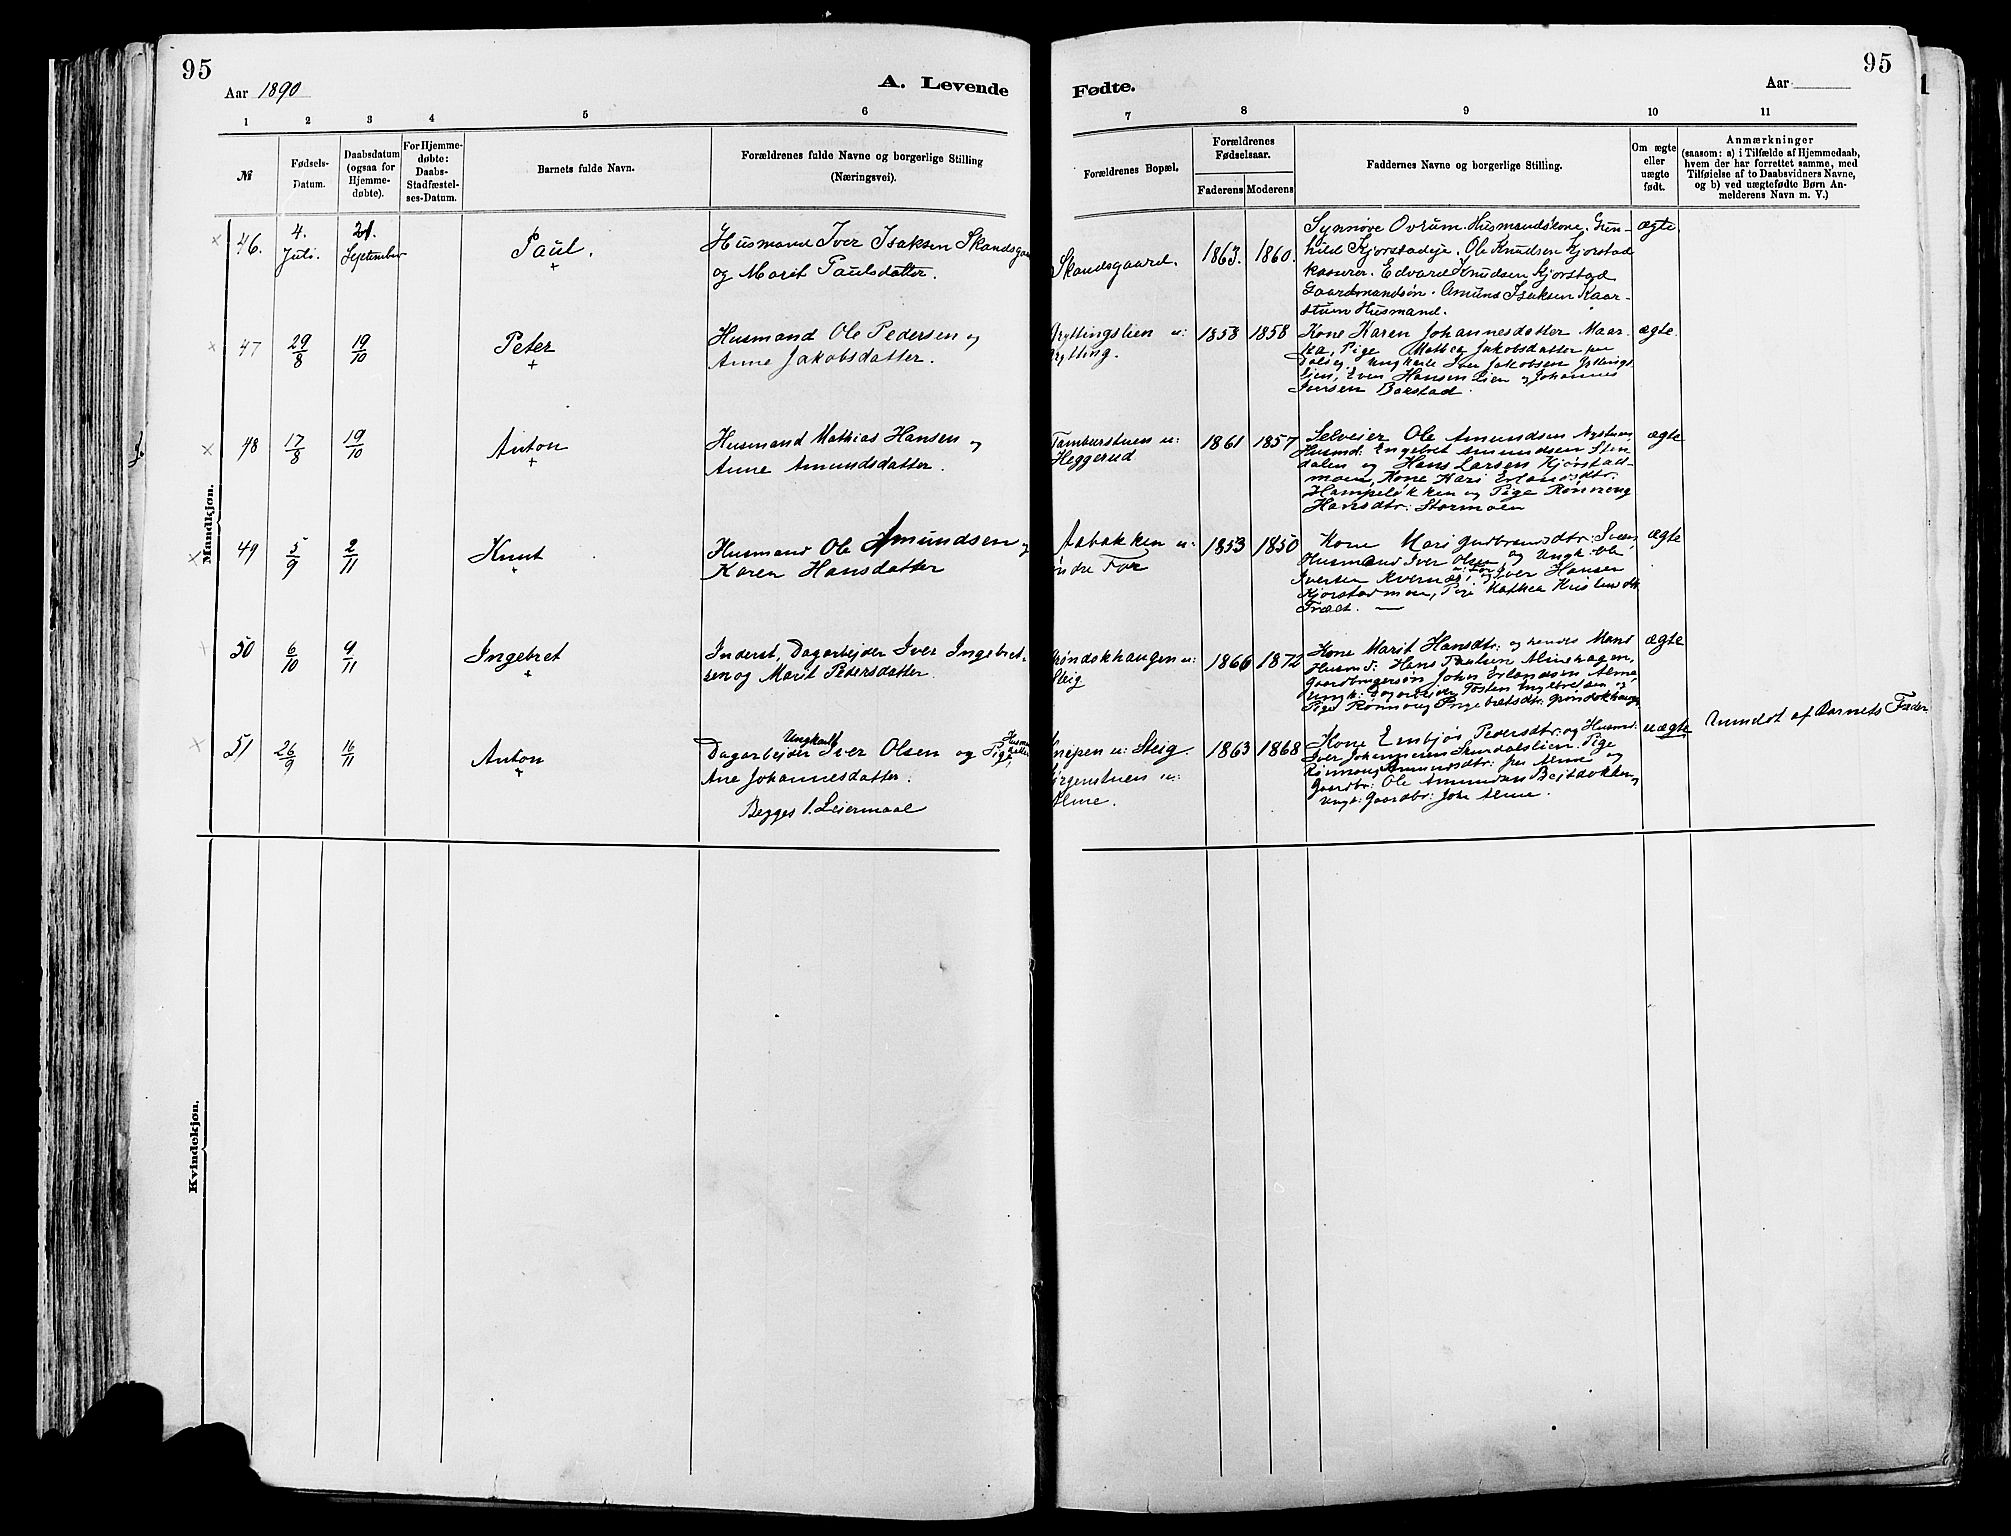 95
Aar 1890
A. Levende
1 2 3 4 5 6
№
Fødsels-Datum.
Daabsdatum (ogsaa for Hjemmedøbte).
For Hjemmedøbte: Daabs-Stadfæstelses-Datum.
Barnets fulde Navn.
Forældrenes fulde Navne og borgerlige Stilling (Næringsvei).
Mandkjøn.
46. 4. Juli. 21. September Paul. Husmand Iver Isaksen Skandsgaa
og Marit Paulsdatter.
47 29/8 19/10 Peter Husmand Ole Pedersen og
Anne Jakobsdatter.
48 17/8 19/10 Anton Husmand Mathias Hansen og
Anne Amundsdatter.
49 5/9 2/11 Knut Husmand Ole Amundsen og
Karen Hansdatter
50 6/10 9/11 Ingebret Inderst, Dagarbejder Iver Ingebret-
sen og Marit Pedersdatter.
51 26/9 16/11 Anton Ungkarl
Dagarbejder Iver Olsen og Pige
Ane Johannesdatter.
Begges 1. Leiermaal
Kvindekjøn.
95
Fødte.
Aar
7 8 9 10 11
Forældrenes Bopæl.
Forældrenes Fødselsaar.
Faderens Moderens
Faddernes Navne og borgerlige Stilling.
Om ægte eller uægte født.
Anmærkninger
(saasom: a) i Tilfælde af Hjemmedaab,
hvem der har forrettet samme, med
Tilføielse af to Daabsvidners Navne,
og b) ved uægtefødte Børn An-
melderens Navn m. V.)
Skandsgaard. 1863. 1860. Synnøve Ovrum Husmandskone. Gun- ægte.
hild Kjorstadeje. Ole Knudsen Kjorstad
Edvard Knudsen Kjorstad
Gaardmandsøn. Amund Isaksen Kaar-
stuen Husmand.
ryttingslien u: 1853 1858 Kone Karen Johannesdatter Maar- ægte.
rytting. Pige Mathea Jakobsdatter
Ungkarle Iver Jakobsen
lien, Even Hansen Lien og Johannes
Iversen Barstad
Tamburstuen u: 1861 1857 Selveier Ole Amundsen Nystuen, ægte
Heggerud Husmd: Engebret Amundsen Sten-
dalen og Hans Larsen Kjørstad-
moen, Kone Kari Erlandsdtr:
Hampeløkken og Pige Rønnaug
Hansdtr: Stormoen
Aabakken u: 1853 1850 Kone Mari Gudbrandsdtr: ægte
øndre For Husmand Iver Olsen og Ungk: Ole
Iversen Kvernes, og Iver Hansen
Kjorstadmoen, Pige Mathea
røndokhaugen u: 1866 1872 Kone Marit Hansdtr: og hendes Mand ægte
Steig Husmd: Hans Paulsen Almehagen,
Gaardbrugersøn John Erlandsen Alme,
Ungk: Dagarbejder Tosten Ingebretsen og
Pige Rønnoug Ingebretsdtr: Grøndokhaugen
næpen u: Steig 1863 1868 Kone Embjør Pedersdtr: og Husmd: uægte Anmeldt af Barnets Fader
ørgenstuen u: Iver Johannesen Skurdalslien. Pige
Alme. Rønnoug Amundsdtr: fra Alme og
Gaardbr: Ole Amundsen
Ungk: Gaardbr: John Alme.